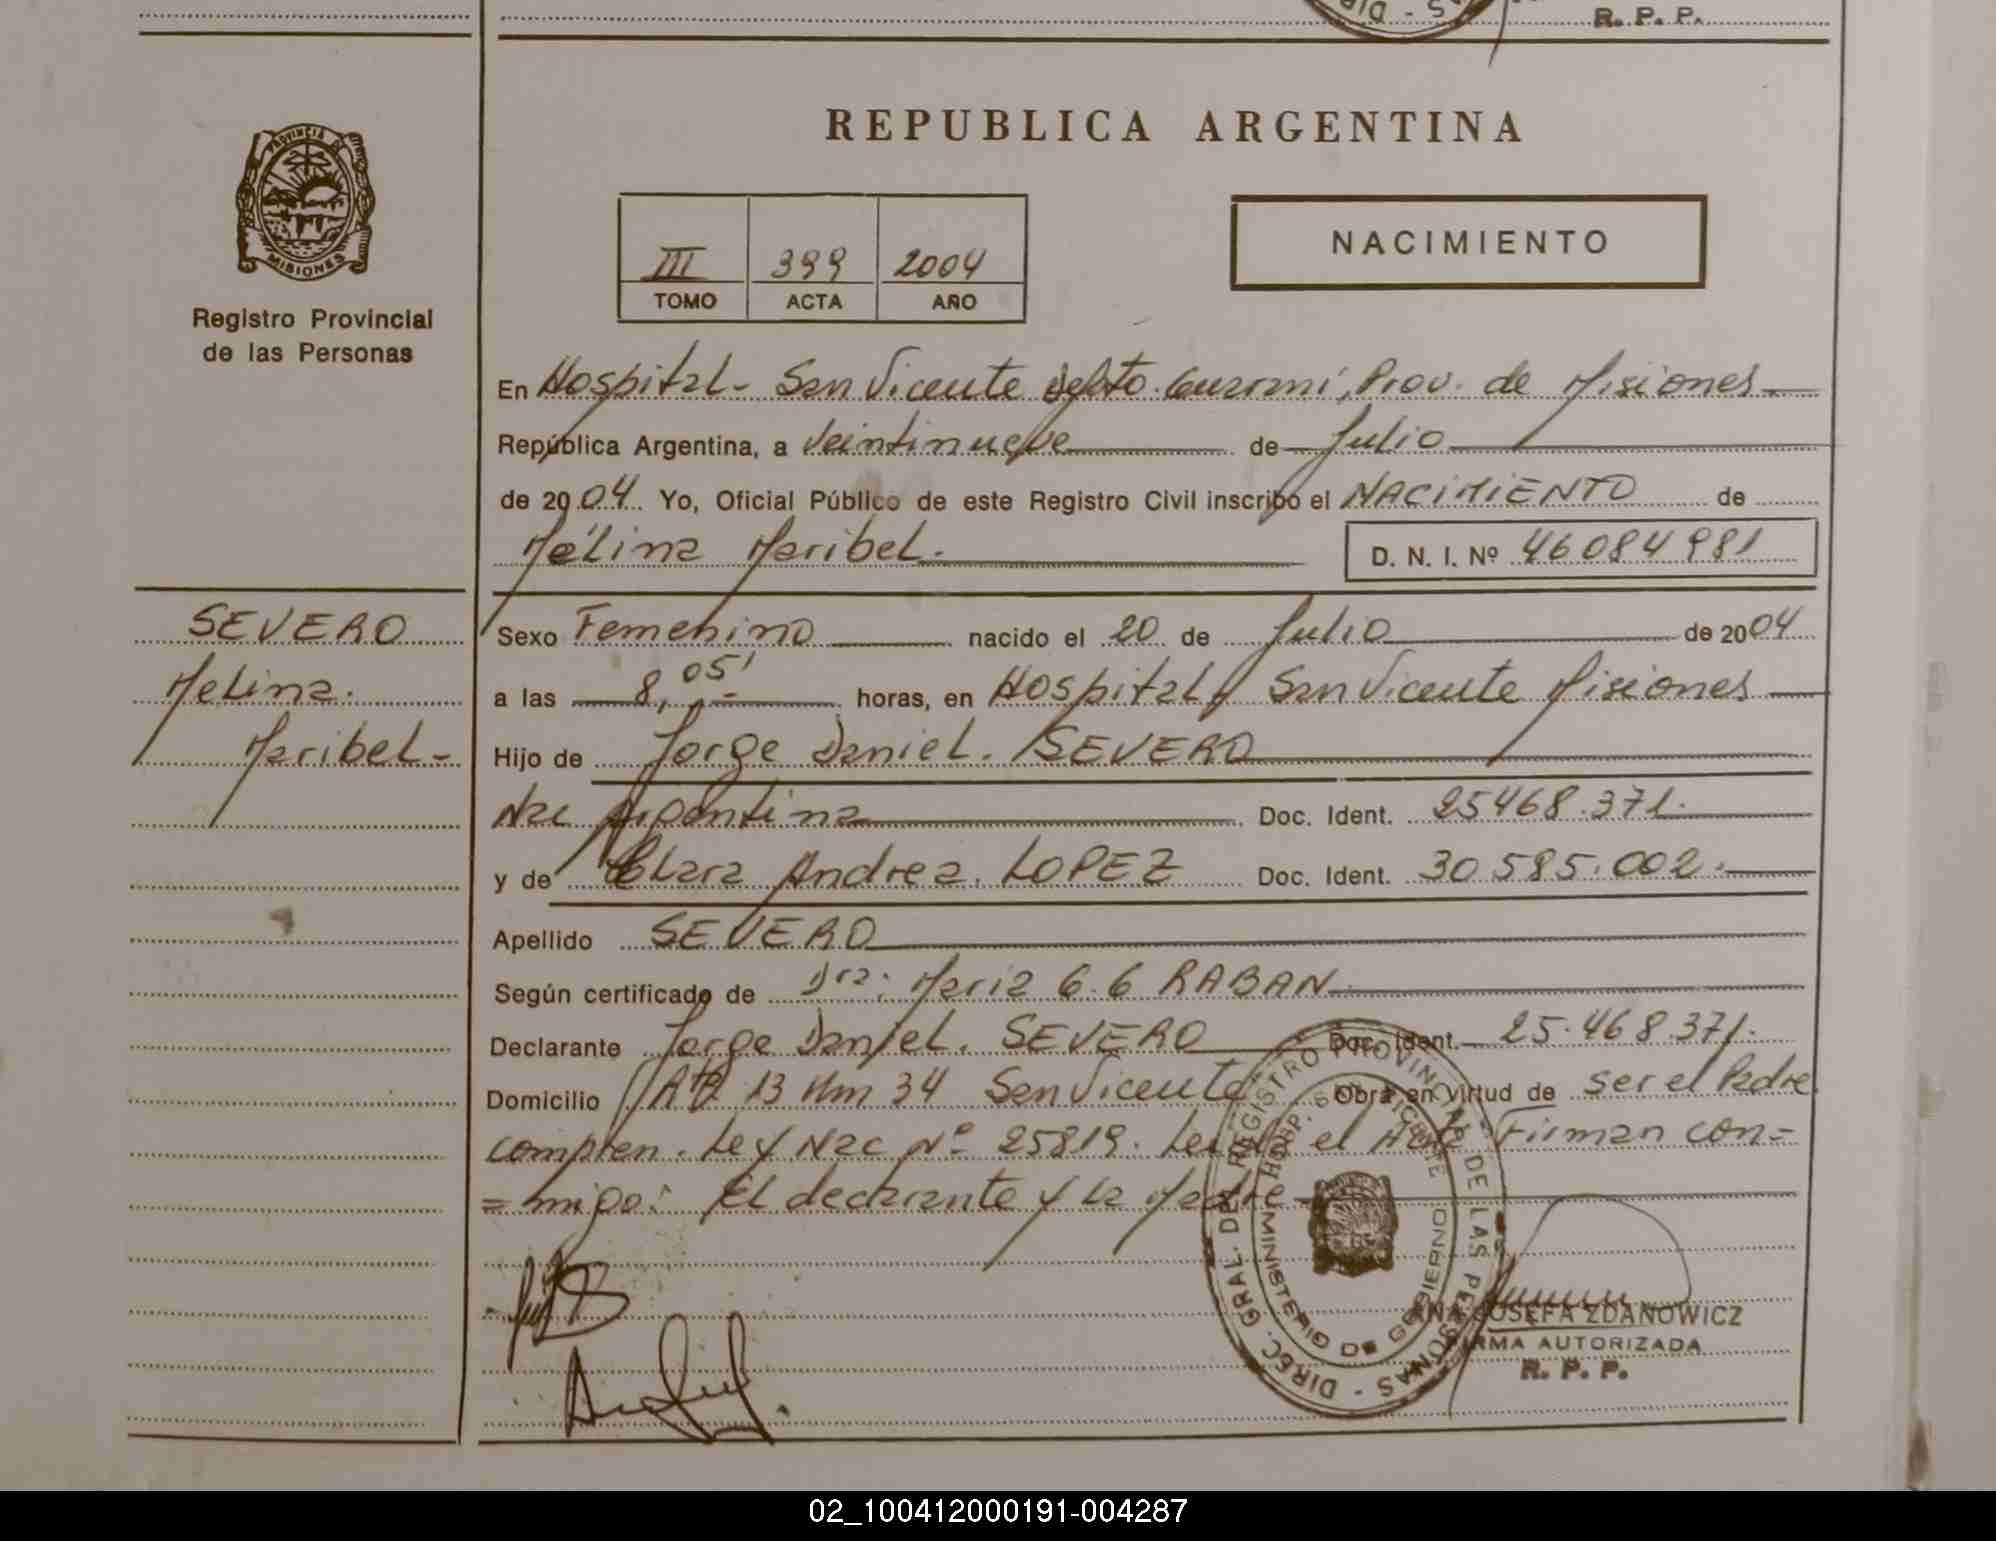 R. P. P.
REPUBLICA ARGENTINA
PROVINCIA DE
MISIONES
Registro Provincial
de las Personas
III 399 2004
TOMO ACTA AÑO
NACIMIENTO
En Hospital - San Vicente Depto. Guarani, Prov. de Misiones
República Argentina, a Veintinueve de Julio
de 2004 Yo, Oficial Público de este Registro Civil inscribo el NACIMIENTO de
Mélina Maribel. D. N. I. Nº 46084981
SEVERO
Melina.
Maribel-
Sexo Femenino nacido el 20 de Julio de 2004
a las 8,05' horas, en Hospital, San Vicente Misiones
Hijo de Jorge Daniel. SEVERO
Nac Argentina Doc. Ident. 25468.371.
y de Clara Andrea. LOPEZ Doc. Ident. 30585.002.
Apellido SEVERO
Según certificado de Dra: Maria G.G RABAN
Declarante Jorge Daniel. SEVERO Doc. Ident. 25.468.371.
Domicilio 13 Km 34 San Vicente Obra en virtud de ser el Padre
compren. Ley Nac Nº 25819. el Acta Firman con=
=migo: El declarante y la Madre
DIREC. GRAL. DEL REGISTRO PROVINCIAL DE LAS PERSONAS
HOSP. SAN VICENTE
MINISTERIO DE GOBIERNO
ANA JOSEFA ZDANOWICZ
FIRMA AUTORIZADA
R. P. P.
02_100412000191-004287